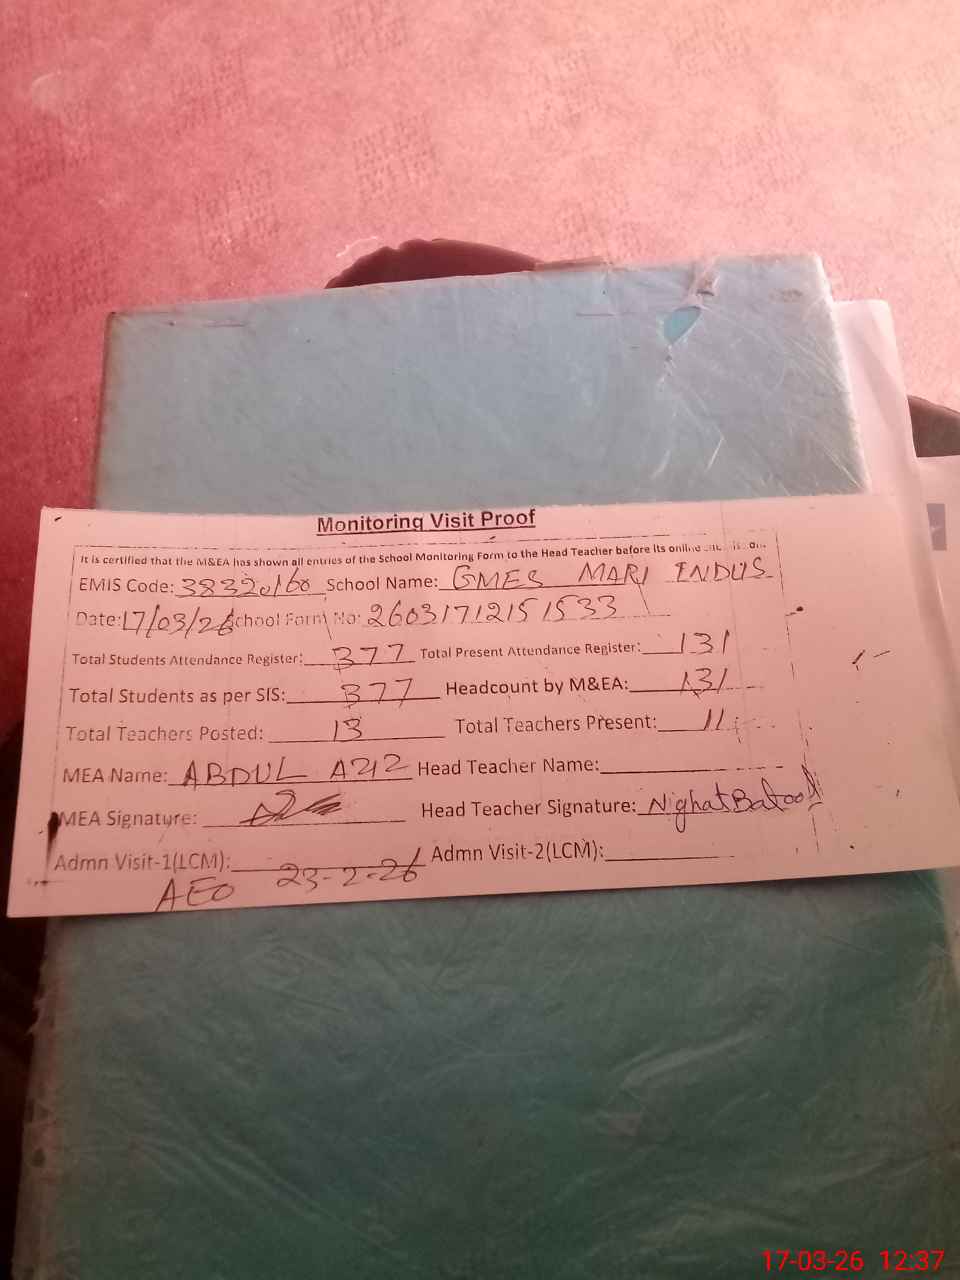 Monitoring Visit Proof
It is certified that the M&EA has shown all entries of the School Monitoring Form to the Head Teacher before its online
EMIS Code: 38320160 School Name: GMES MARI INDUS
Date: 17/03/26 School Form No: 26031712151533
Total Students Attendance Register: 377 Total Present Attendance Register: 131
Total Students as per SIS: 377 Headcount by M&EA: 131
Total Teachers Posted: 13 Total Teachers Present: 11
MEA Name: ABDUL AZIZ Head Teacher Name:
MEA Signature: Head Teacher Signature: Nighat Batool
Admn Visit-1(LCM): Admn Visit-2(LCM):
AEO 23-2-26
17-03-26 12:37